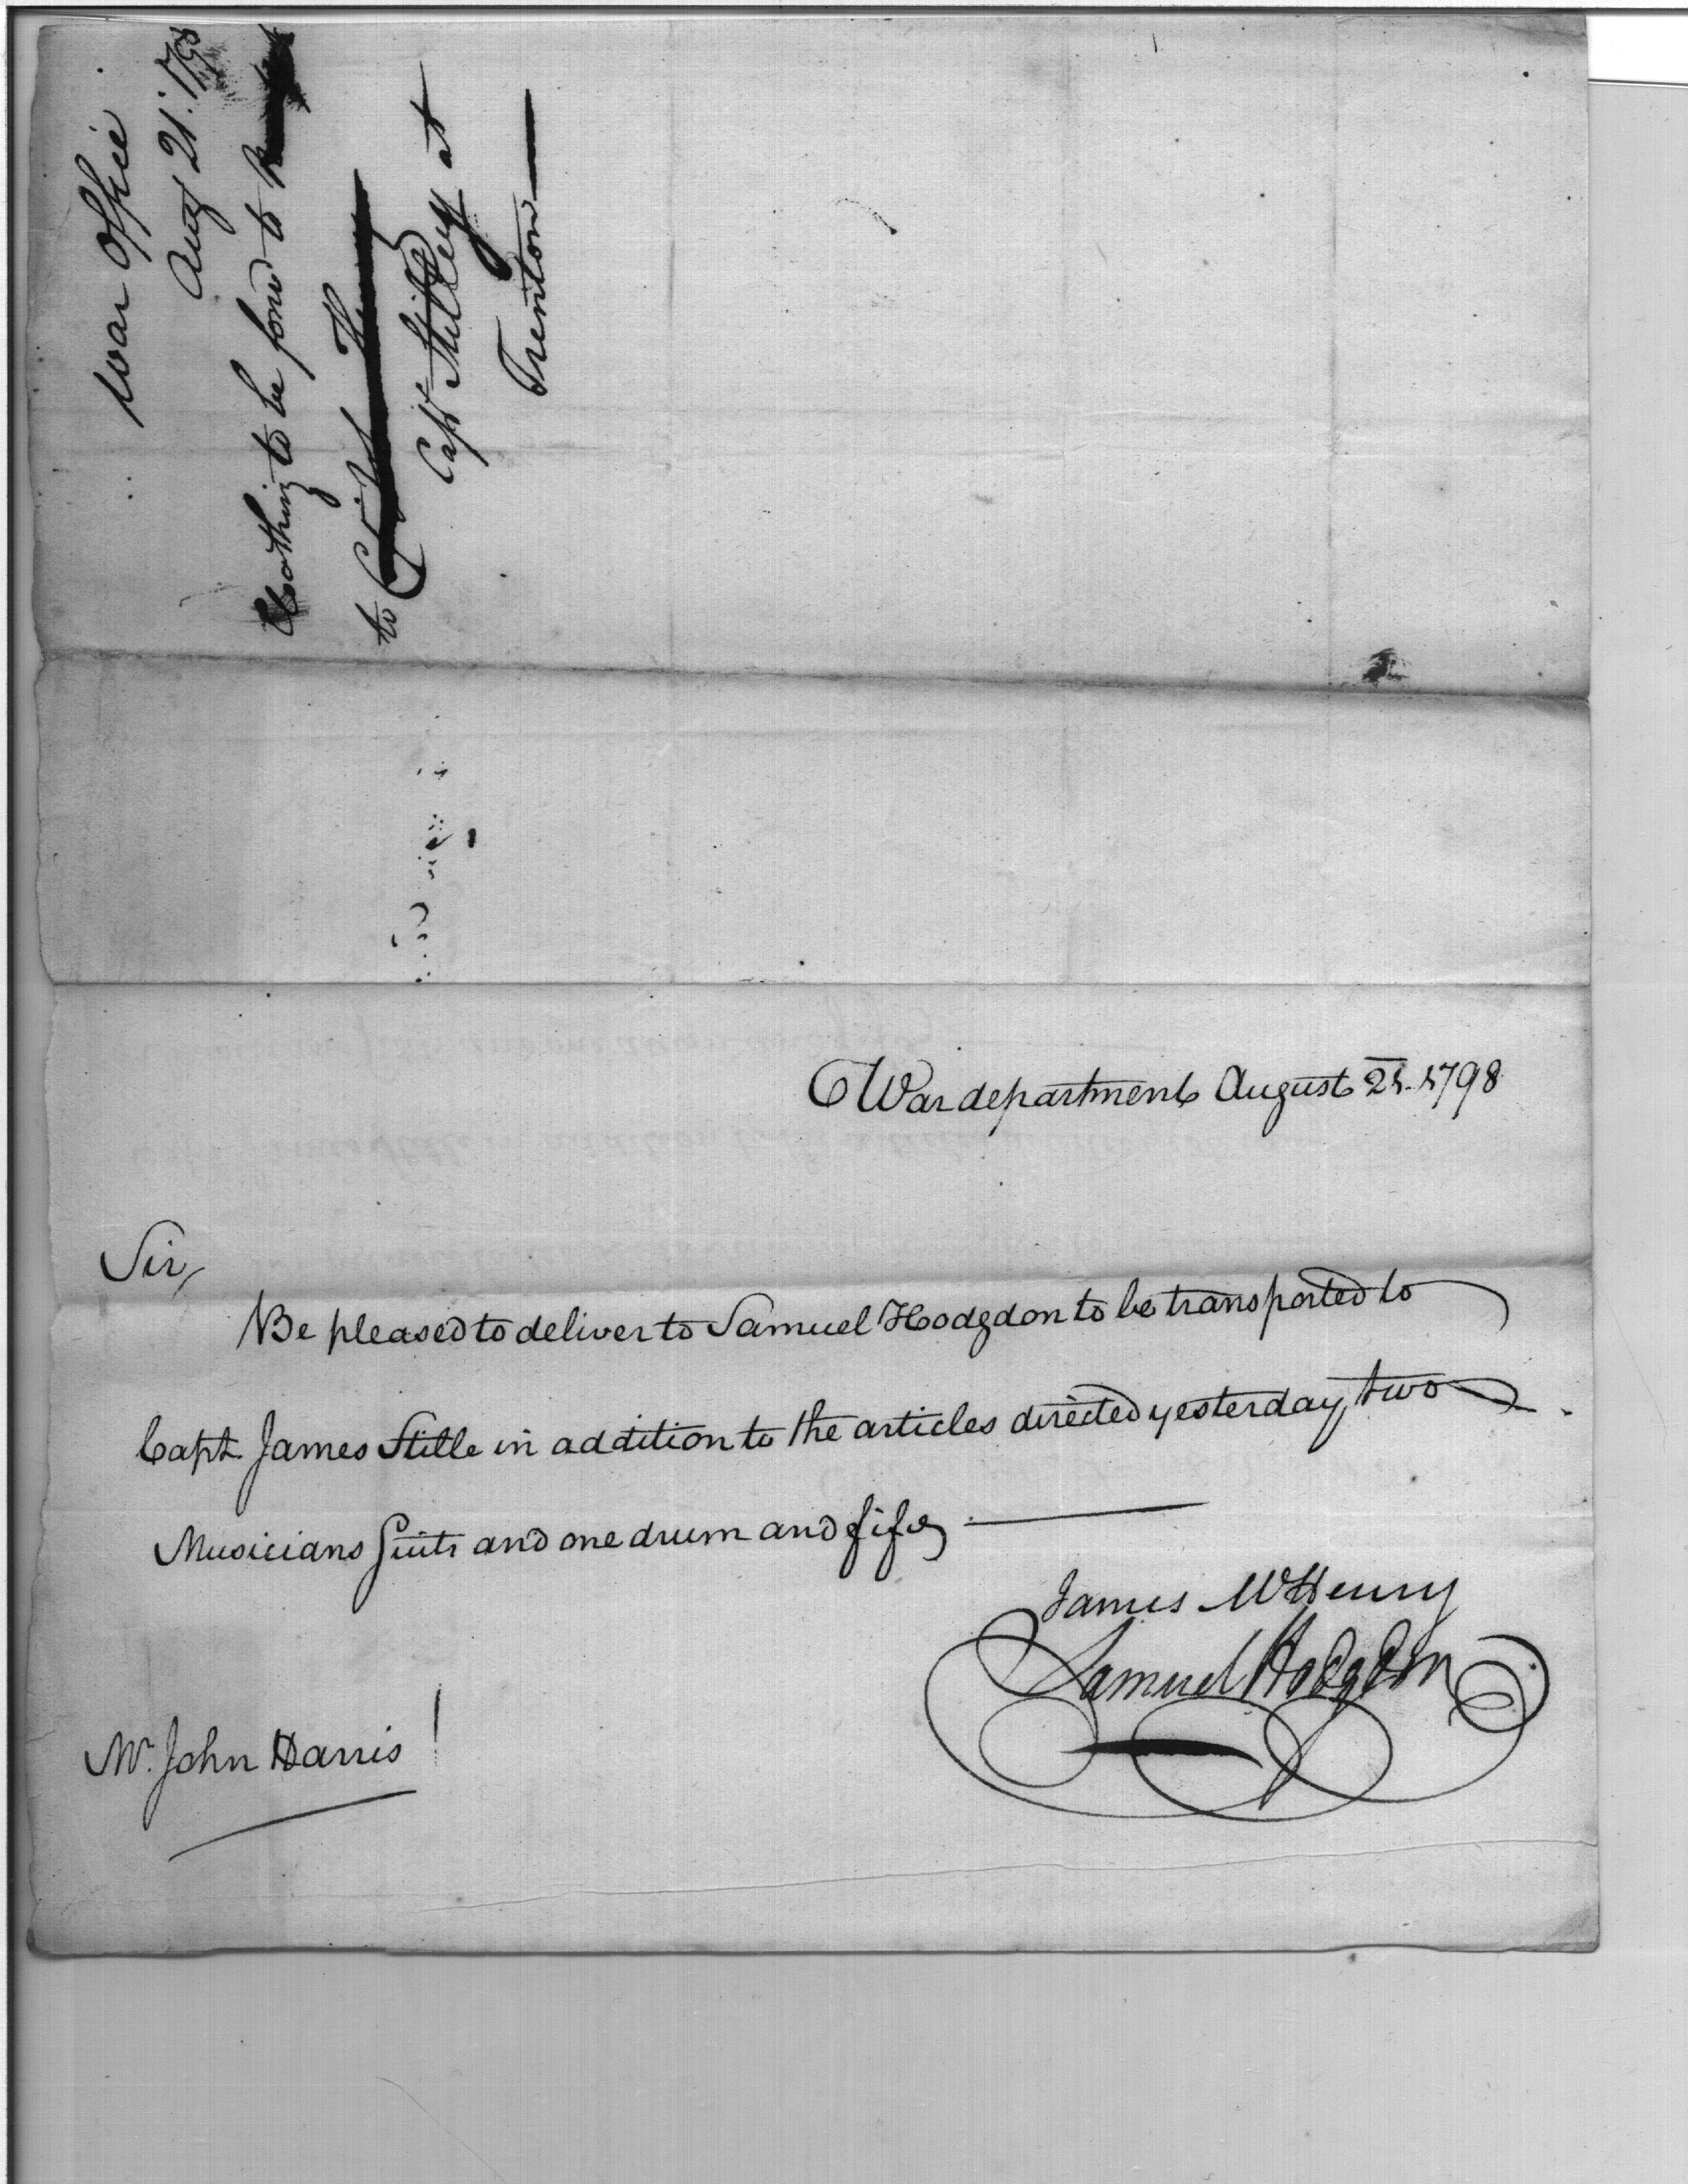 War Office
Aug 21. 1798
Cloathing to be forw'd to
to
Capt Stilley at
Trenton
War department August 21. 1798
Sir,
Be pleased to deliver to Samuel Hodgdon to be transported to
Capt. James Stille in addition to the articles directed yesterday, two
Musicians Suits and one drum and fife
James McHenry
Samuel Hodgdon
Mr. John Harris